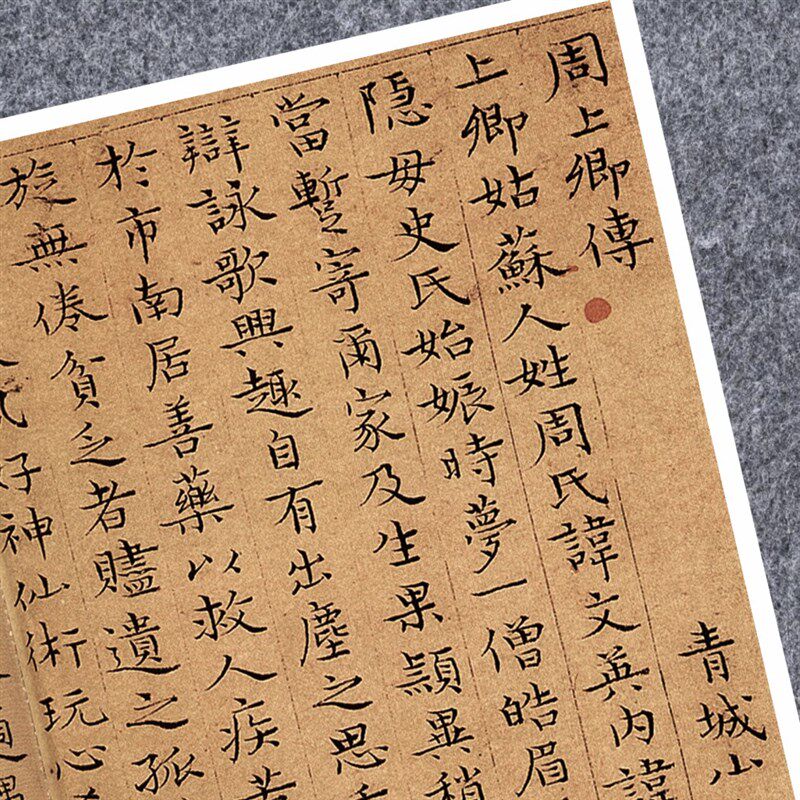 周上卿傳 青城山
上卿姑蘇人姓周氏諱文英內諱
隱毋史氏始娠時夢一僧皓眉
當蹔寄爾家及生果頴異稍
辯詠歌興趣自有出塵之思
於市南居善藥以救人疾苦
旋無倦貧乏者贐遺之孤
好神仙術玩心